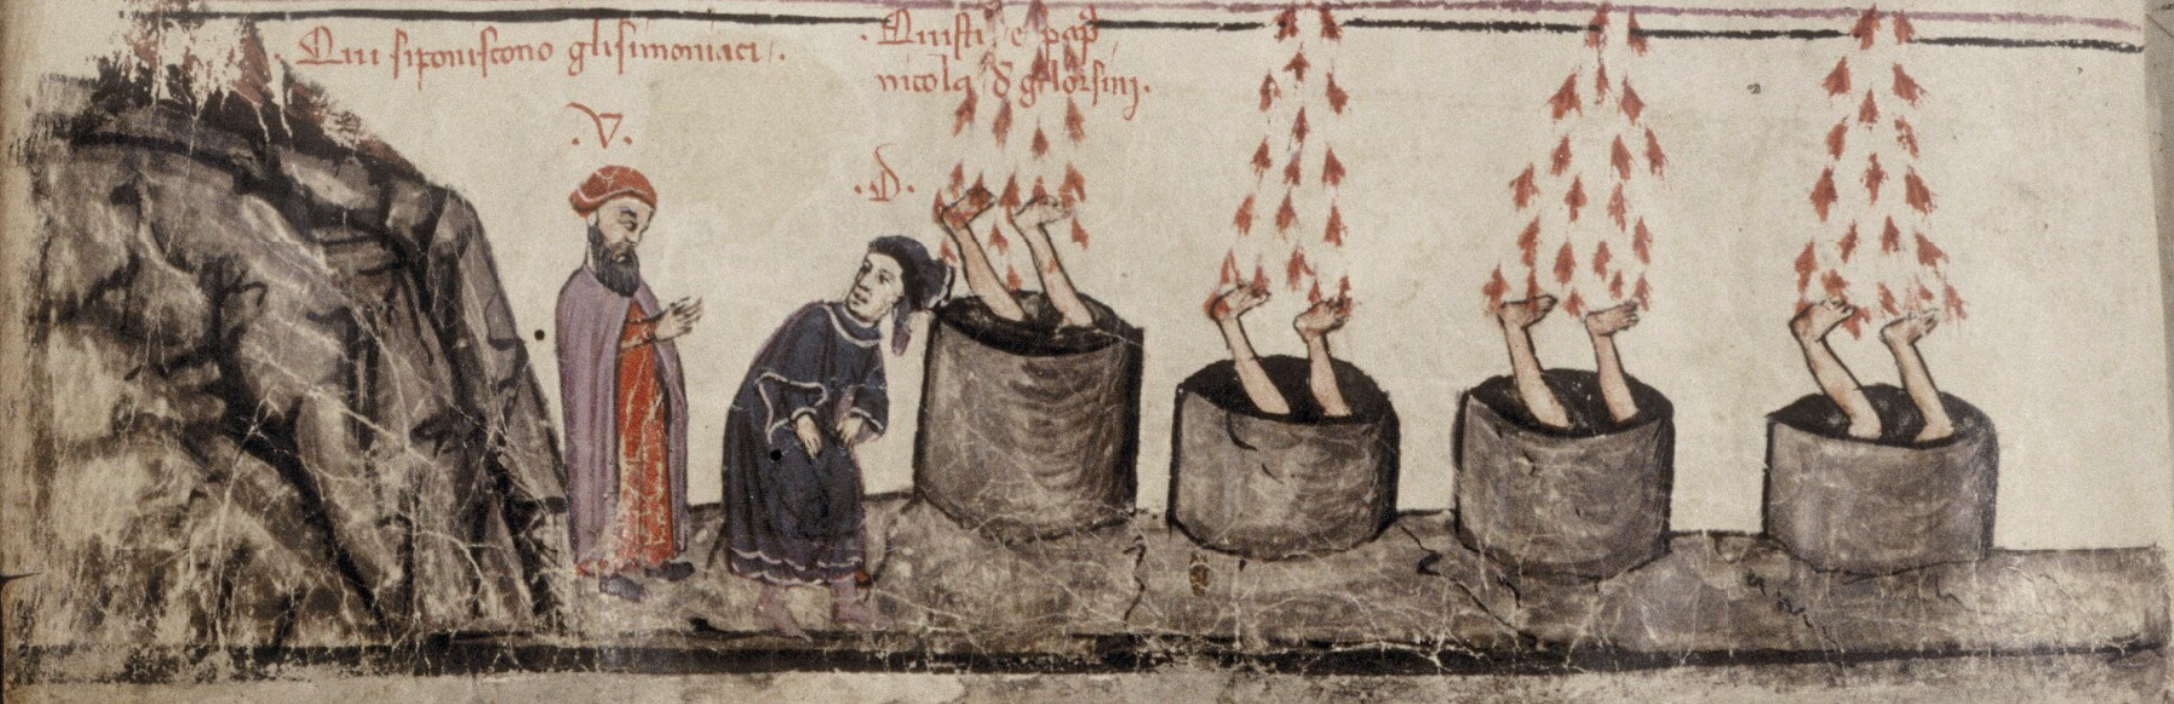 Qui siponiscono glisimoniaci.
.V.
Quisti e pap
nicola d gilorsinj.
.D.